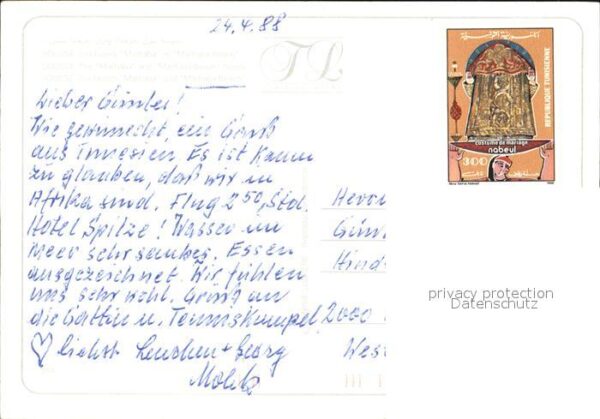 24.4.88
TL
Lieber Günter!
Wie gewünscht, ein Gruß
aus Tunesien. Es ist kaum
zu glauben, daß wir in
Afrika sind. Flug 2 50, Std.
Hotel Spitze! Wasser im
Meer sehr sauber. Essen
ausgezeichnet. Wir fühlen
uns sehr wohl. Gruß an
die Gattin u. Tenniskumpel,
herzlichst Lenchen + Georg
REPUBLIQUE TUNISIENNE
costume de mariage
nabeul
300
Herrn
Günt
Hind
2000
Wes
privacy protection
Datenschutz